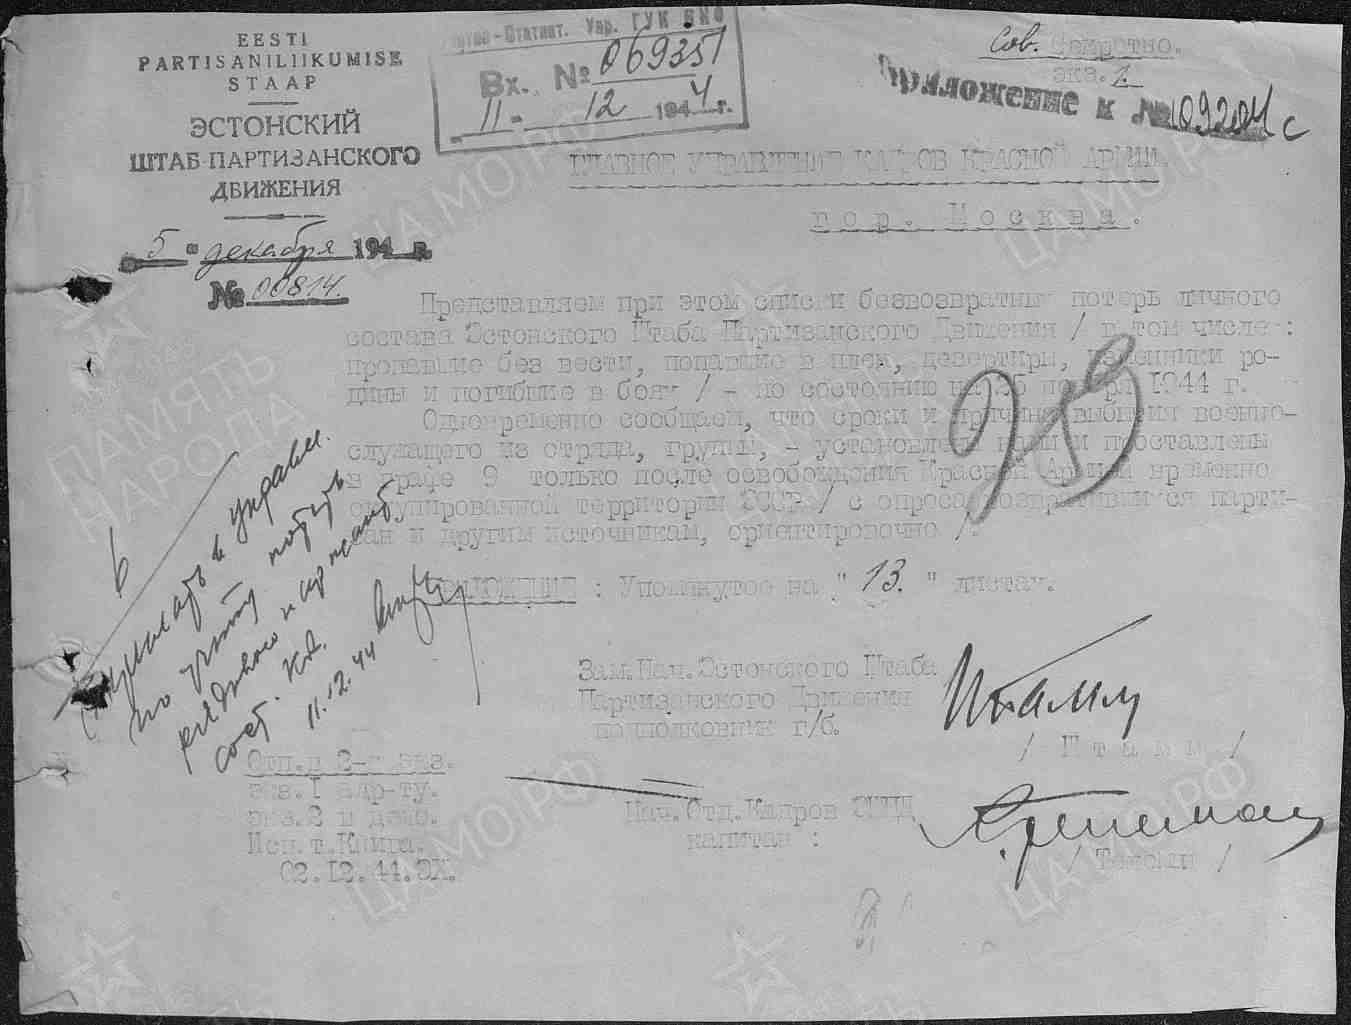 EESTI
PARTISANILIIKUMISE
STAAP
ЭСТОНСКИЙ
ШТАБ ПАРТИЗАНСКОГО
ДВИЖЕНИЯ
5 " декабря 194 г.
№ 00814.
Статист. Упр. ГУК НКО
Вх. № 069351
11 - 12 1944 г.
Сов. Секретно.
экз. 1
Приложение к № 109204 с
ГЛАВНОЕ УПРАВЛЕНИЕ КАДРОВ КРАСНОЙ АРМИИ.
гор. Москва.
Представляем при этом списки безвозвратных потерь личного
состава Эстонского Штаба Партизанского Движения / в том числе :
пропавшие без вести, попавшие в плен, дезертиры, изменники ро-
дины и погибшие в боях / - по состоянию на 25 ноября 1944 г.
Одновременно сообщаем, что сроки и причина выбытия военно-
служащего из отряда, группы, - установлены нами и проставлены
в графе 9 только после освобождения Красной Армией временно
оккупированной территории СССР / с опроса возвратившихся парти-
зан и другим источникам, ориентировочно /.
ПРИЛОЖЕНИЕ : Упомянутое на " 13. " листах.
98
6
в управл.
по учету потерь
рядового и сержант.
сост. КА.
11.12.44
Зам.Нач.Эстонского Штаба
Партизанского Движения
подполковник г/б.
Штамм
/ Штамм /
Отп.в 2-х экз.
экз.1 адр-ту.
экз.2 в дело.
Исп.т.Книга.
02.12.44.ЭХ.
Нач.Отд.Кадров ЭШПД
капитан :
ПАМЯТЬ
НАРОДА
ЦАМО.РФ
ЦАМО.РФ
ЦАМО.РФ
ЦАМО.РФ